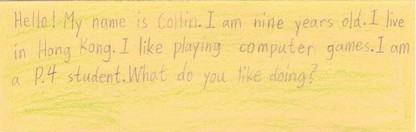 Hello! My name is Collin. I am nine years old. I live
in Hong Kong. I like playing computer games. I am
a P.4 student. What do you like doing?